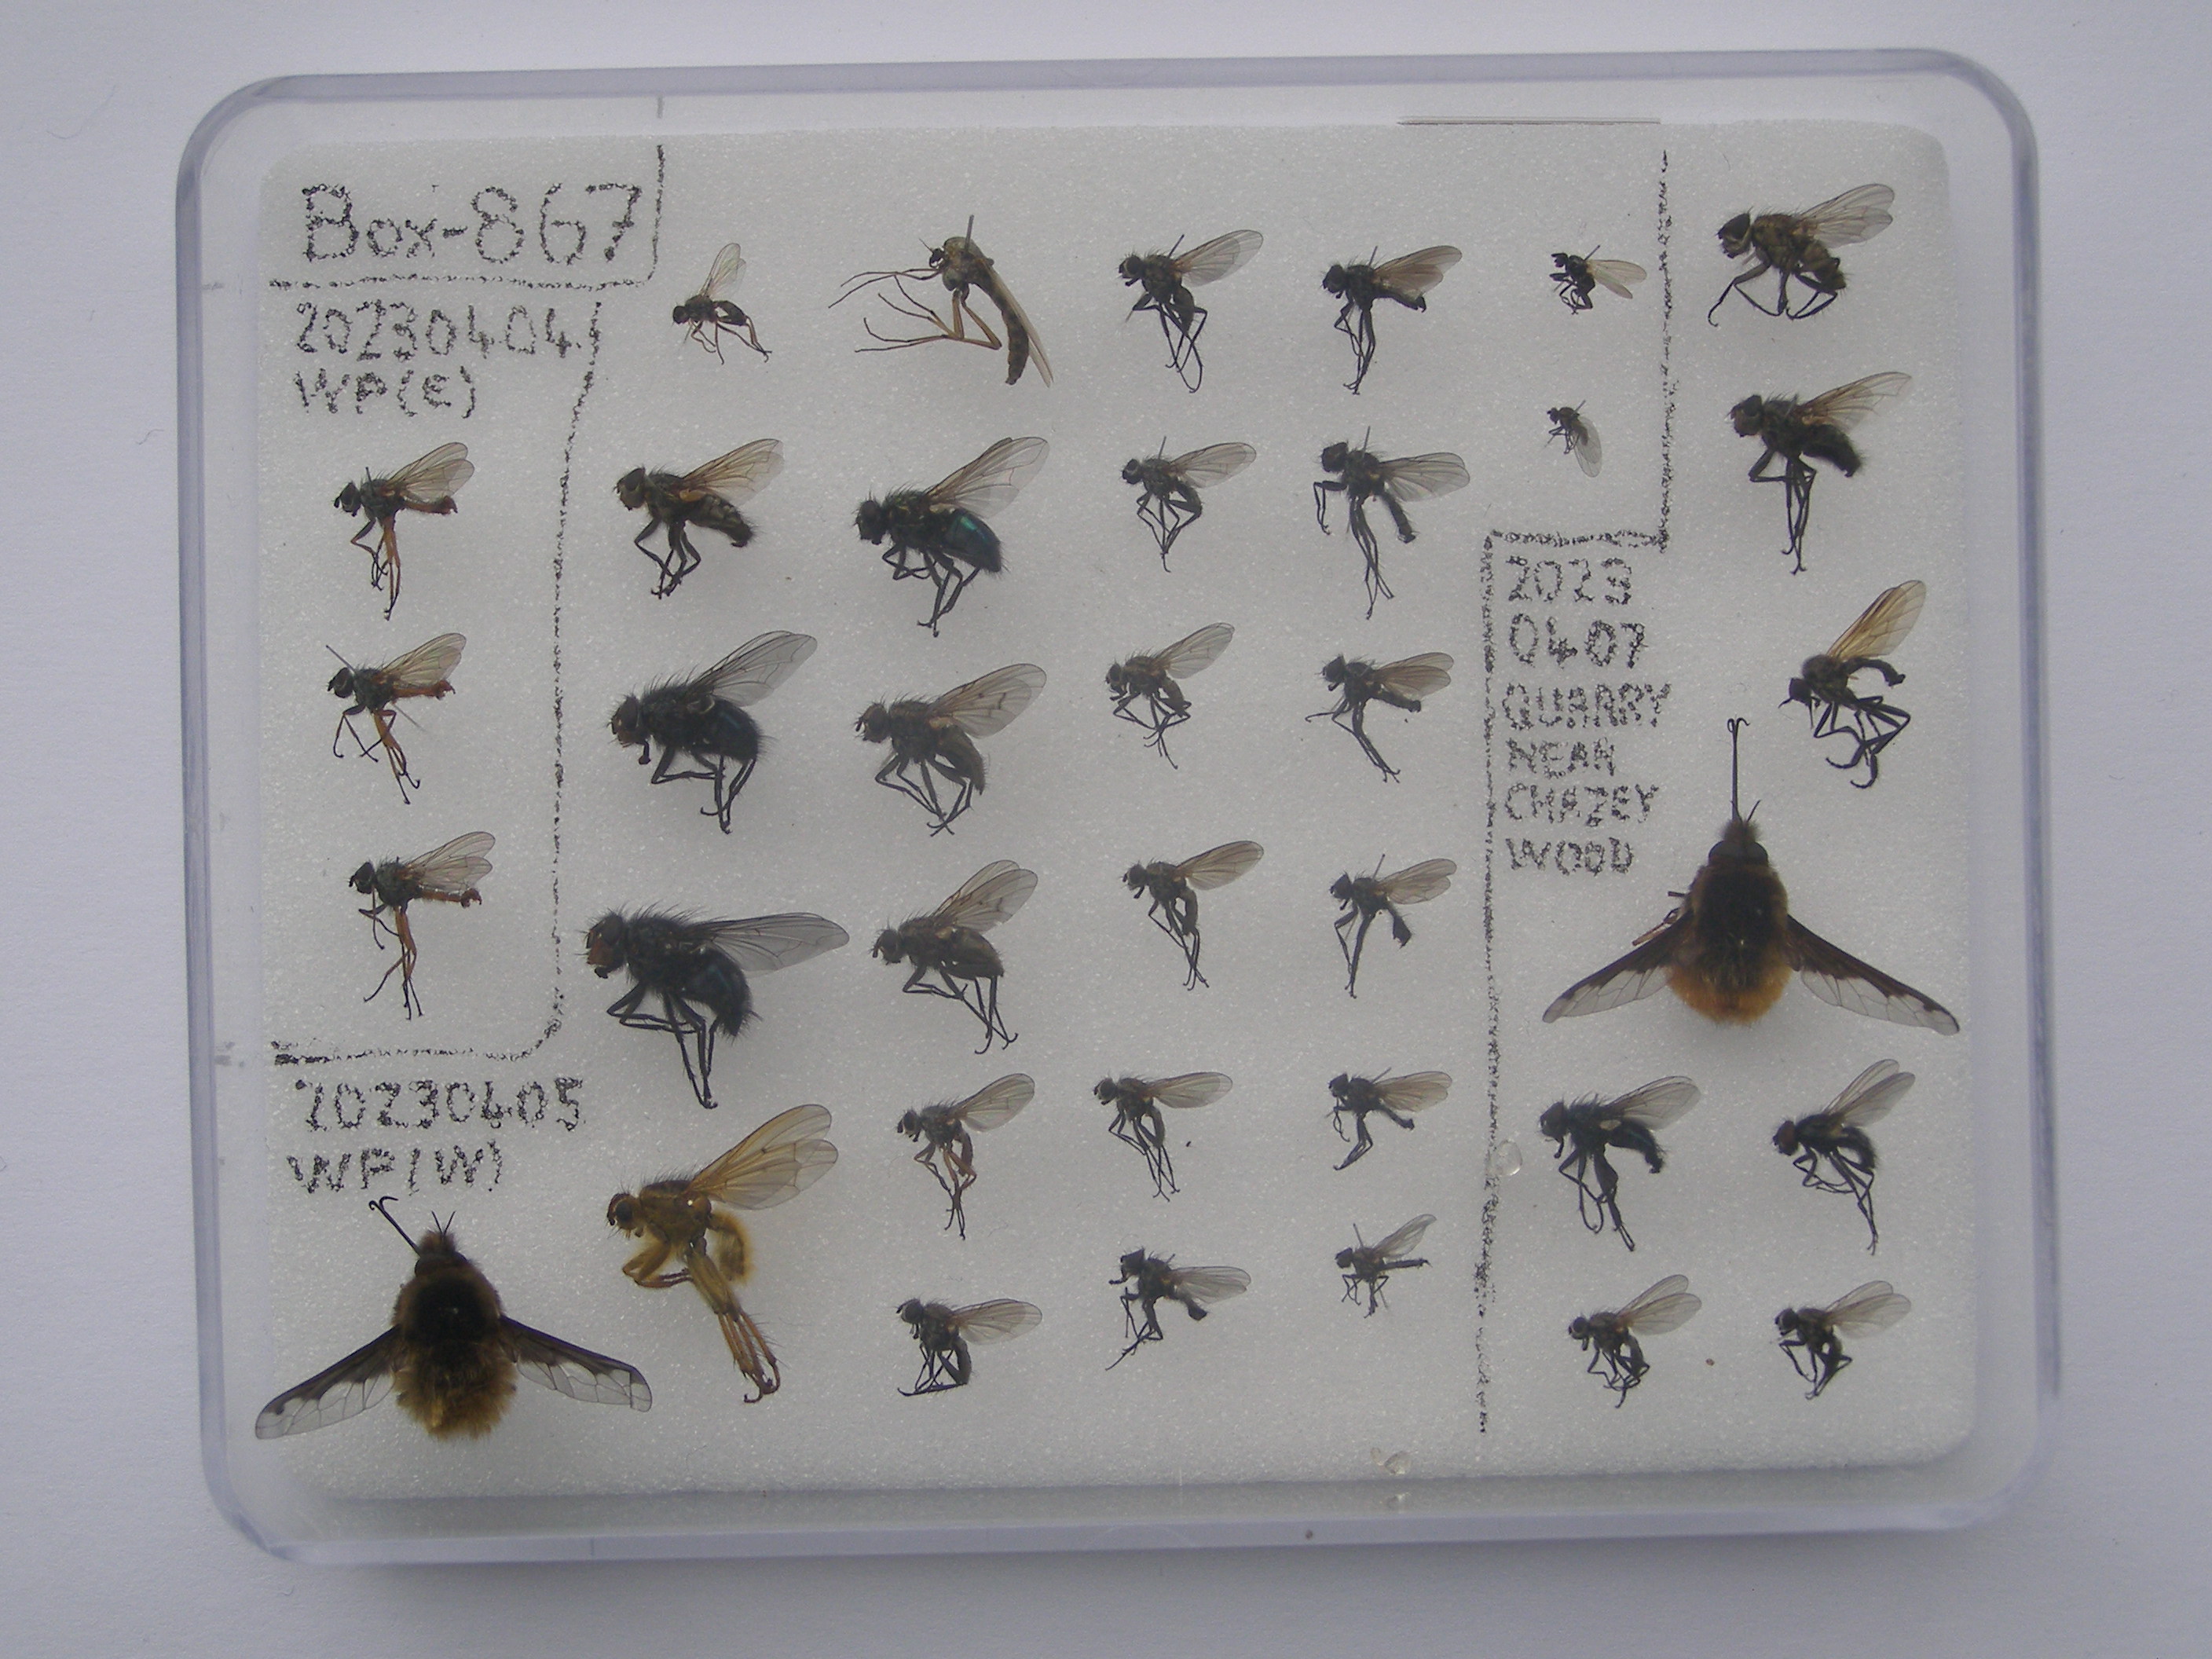 Box-867
20230404
WP(E)
20230405
WP(W)
2023
0407
QUARRY
NEAR
CHAZEY
WOOD